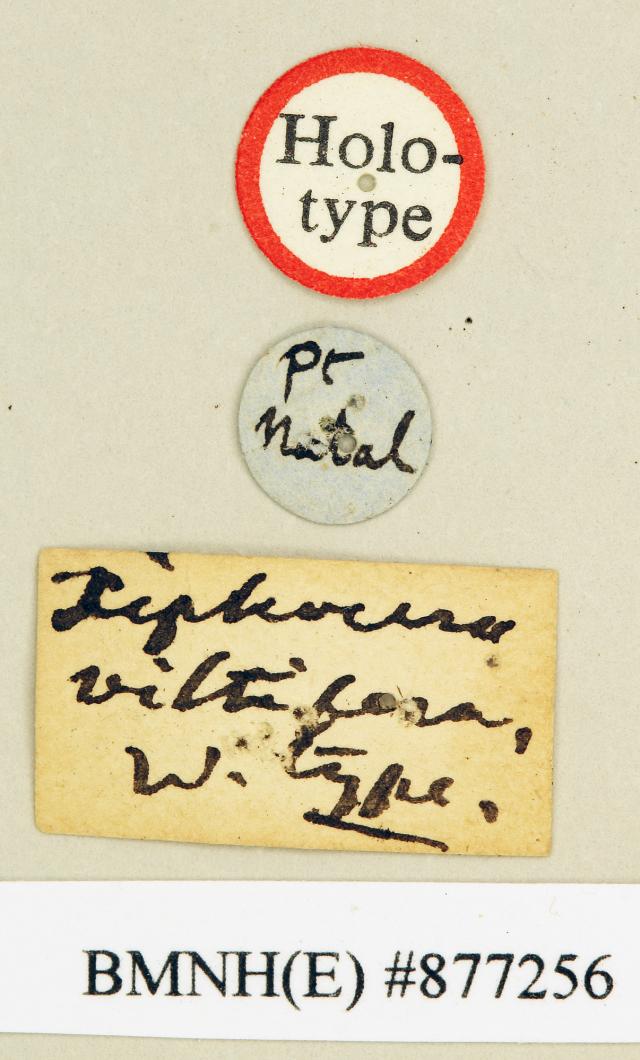 Holo-
type
Pt
Natal
Xiphocera
vittifera,
W. type.
BMNH(E) #877256